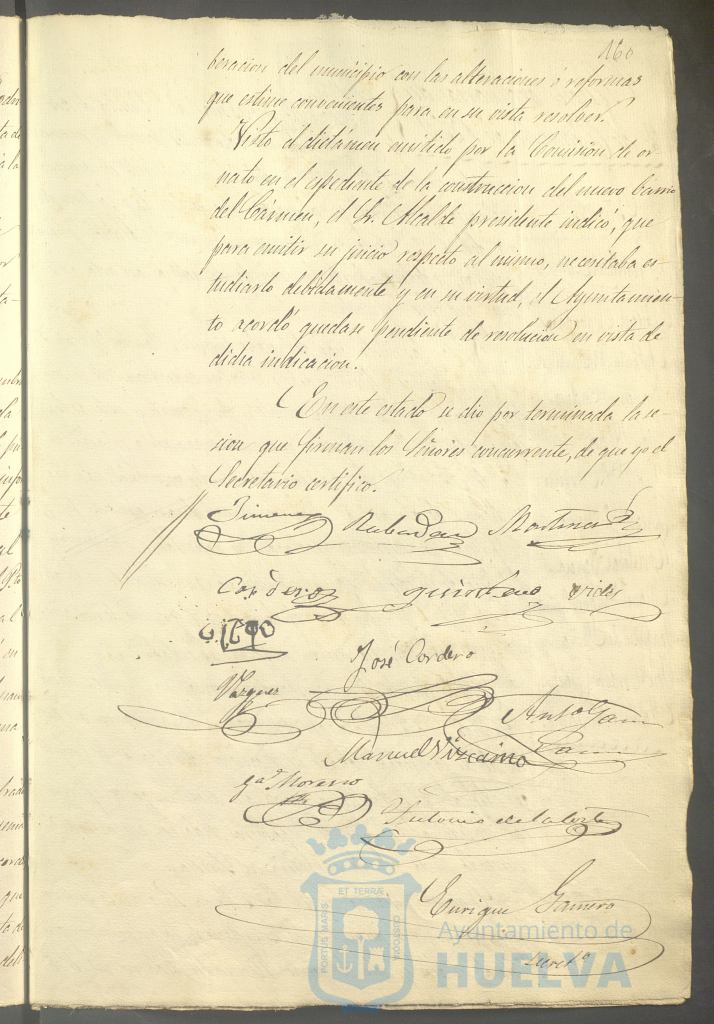 160
beracion del municipio con las alteraciones ó reformas
que estime convenientes para en su vista resolver.
Visto el dictámen emitido por la Comision de or-
nato en el espediente de la construccion del nuevo barrio
del Cármen, el Sr. Alcalde presidente indicó, que
para emitir su juicio respecto al mismo, necesitaba es-
tudiarlo debidamente y en su virtud, el Ayuntamien-
to acordó quedase pendiente de resolucion en vista de
dicha indicacion.
En este estado se dio por terminada la se-
sion que firman los Señores concurrente, de que yo el
Secretario certifico.
Jimenez Martinez
Cordero quintero vides
José Cordero
Vazquez
Antº
Manuel Vizcaino
gª Moreno
Antonio de la Corte
Enrique Gamero
Secretº
ET TERRÆ
PORTUS MARIS
CUSTODIA
Ayuntamiento de
HUELVA